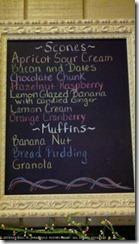 ~Scones~
Apricot Sour Cream
Bacon and Dates
Chocolate Chunk
Hazelnut Raspberry
Lemon Glazed Banana
with Candied Ginger
Lemon Cream
Orange Cranberry
~Muffins~
Banana Nut
Bread Pudding
Granola